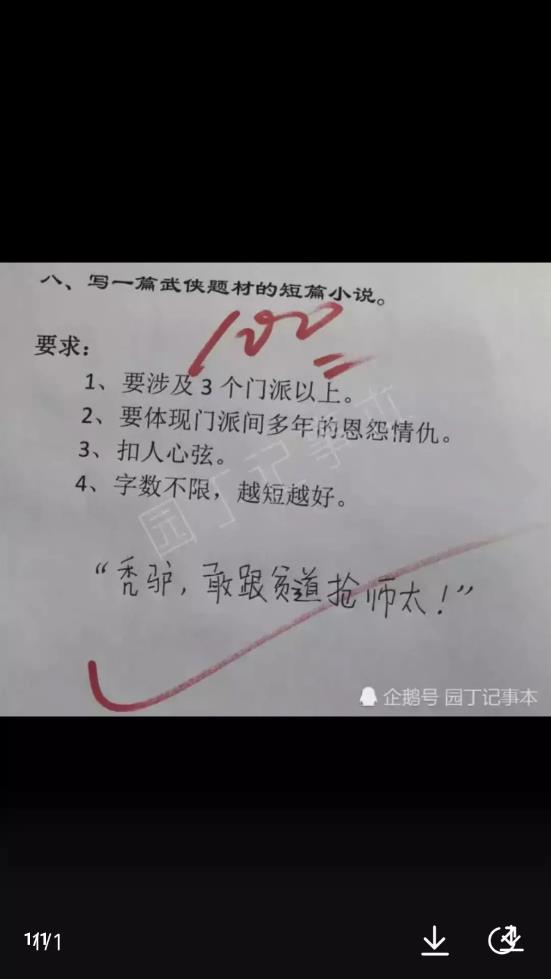 八、写一篇武侠题材的短篇小说。
100
要求：
1、要涉及 3 个门派以上。
2、要体现门派间多年的恩怨情仇。
3、扣人心弦。
4、字数不限，越短越好。
园丁记事本
“秃驴，敢跟贫道抢师太！”
企鹅号 园丁记事本
1/1